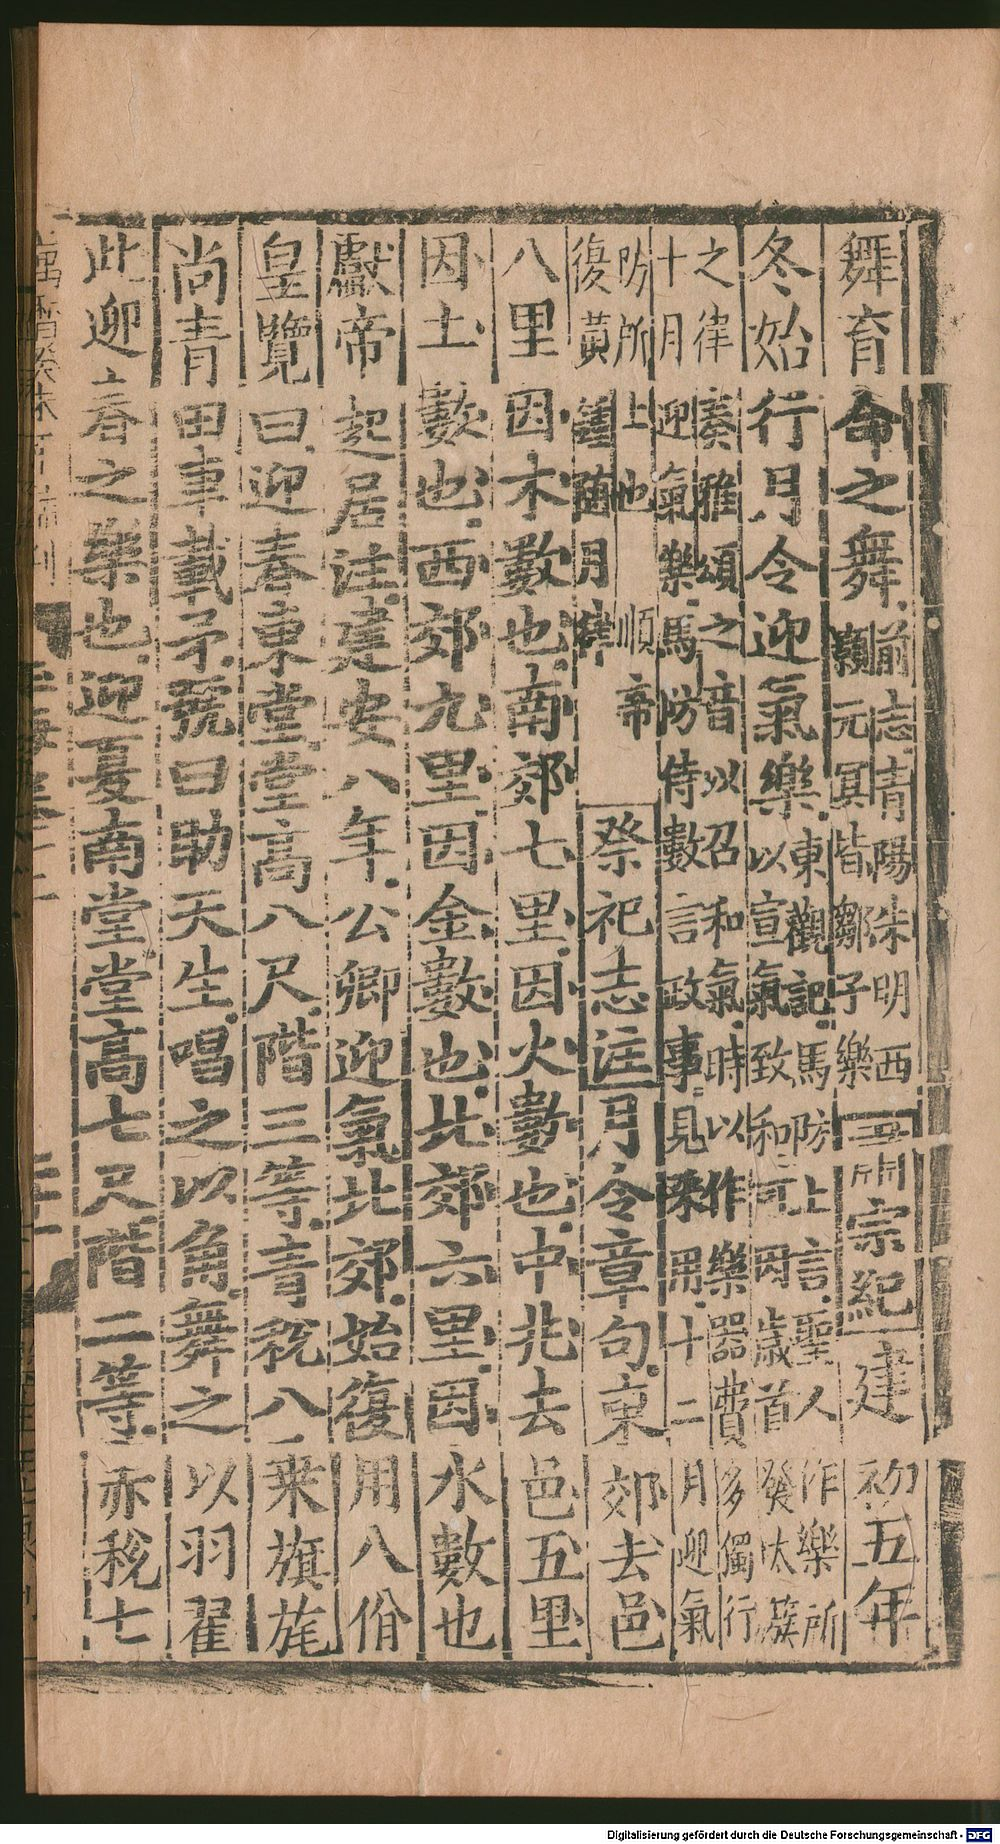 舞育命之舞前志青陽朱明西
顥元冥皆鄒子樂章宗紀建初五年
冬始行月令迎氣樂東觀記馬防上言聖人作樂所
以宣氣致和可因歲首發太簇
之律奏雅頌之音以召和氣時以作樂器費多獨行
十月迎氣樂馬防侍數言政事見采用十二月迎氣
防所上也順帝
復黃鍾隨月律祭祀志注月令章句東郊去邑
八里因木數也南郊七里因火數也中兆去邑五里
因土數也西郊九里因金數也北郊六里因水數也
獻帝起居注建安八年公卿迎氣北郊始復用八佾
皇覽曰迎春東堂堂高八尺階三等青稅八乗旗旄
尚青田車載矛號曰助天生唱之以角舞之以羽翟
此迎春之樂也迎夏南堂堂高七尺階二等赤稅七
Digitalisierung gefördert durch die Deutsche Forschungsgemeinschaft - DFG